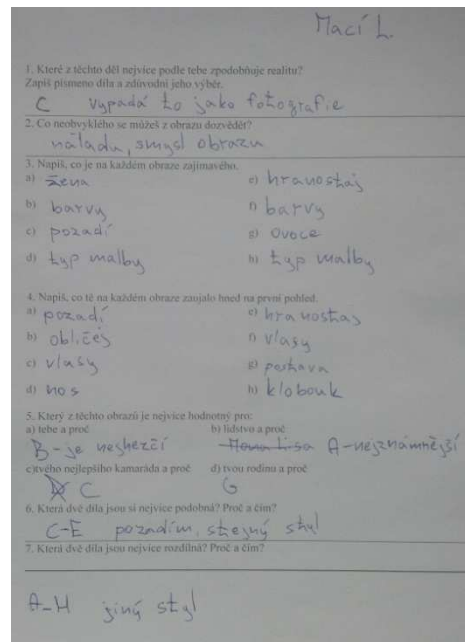 Mací L.
1. Které z těchto děl nejvíce podle tebe zpodobňuje realitu?
Zapiš písmeno díla a zdůvodni jeho výběr.
C vypadá to jako fotografie
2. Co neobvyklého se můžeš z obrazu dozvědět?
náladu, smysl obrazu
3. Napiš, co je na každém obraze zajímavého.
a) žena e) hranostaj
b) barvy f) barvy
c) pozadí g) ovoce
d) typ malby h) typ malby
4. Napiš, co tě na každém obraze zaujalo hned na první pohled.
a) pozadí e) hranostaj
b) obličej f) vlasy
c) vlasy g)
d) nos h) klobouk
5. Který z těchto obrazů je nejvíce hodnotný pro:
a) tebe a proč b) lidstvo a proč
B - je nejhezčí Mona Lisa A - nejznámnější
c) tvého nejlepšího kamaráda a proč d) tvou rodinu a proč
C G
6. Která dvě díla jsou si nejvíce podobná? Proč a čím?
C-E pozadím, stejný styl
7. Která dvě díla jsou nejvíce rozdílná? Proč a čím?
A-H jiný styl